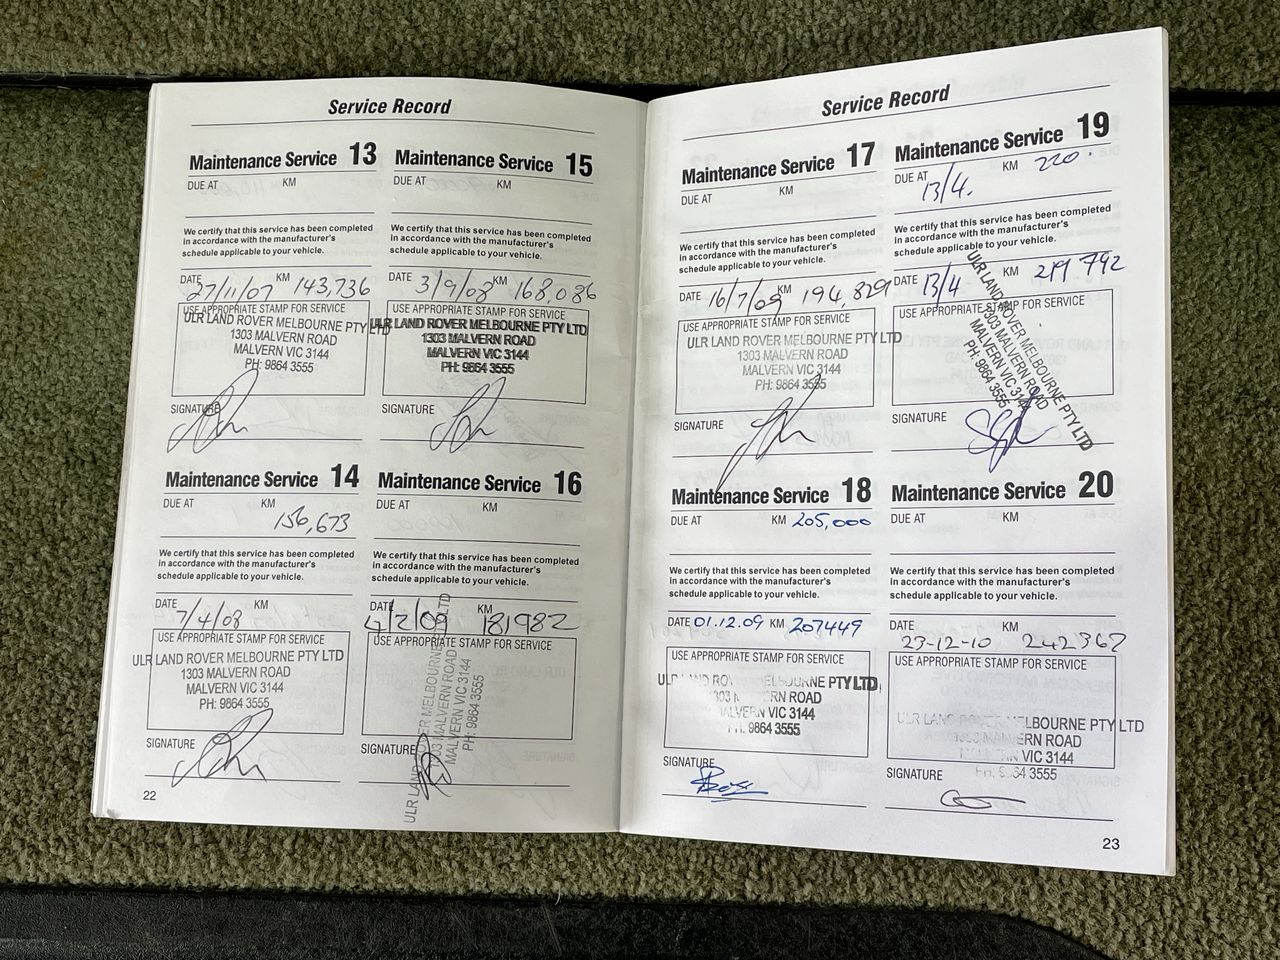 Service Record
Maintenance Service 13
DUE AT KM
We certify that this service has been completed
in accordance with the manufacturer's
schedule applicable to your vehicle.
DATE 27/11/07 KM 143,736
USE APPROPRIATE STAMP FOR SERVICE
ULR LAND ROVER MELBOURNE PTY LTD
1303 MALVERN ROAD
MALVERN VIC 3144
PH: 9864 3555
SIGNATURE
Maintenance Service 14
DUE AT KM
156,673
We certify that this service has been completed
in accordance with the manufacturer's
schedule applicable to your vehicle.
DATE 7/4/08 KM
USE APPROPRIATE STAMP FOR SERVICE
ULR LAND ROVER MELBOURNE PTY LTD
1303 MALVERN ROAD
MALVERN VIC 3144
PH: 9864 3555
SIGNATURE
22
Maintenance Service 15
DUE AT KM
We certify that this service has been completed
in accordance with the manufacturer's
schedule applicable to your vehicle.
DATE 3/9/08 KM 168,086
USE APPROPRIATE STAMP FOR SERVICE
ULR LAND ROVER MELBOURNE PTY LTD
1303 MALVERN ROAD
MALVERN VIC 3144
PH: 9864 3555
SIGNATURE
Maintenance Service 16
DUE AT KM
We certify that this service has been completed
in accordance with the manufacturer's
schedule applicable to your vehicle.
DATE 4/2/09 KM 181982
USE APPROPRIATE STAMP FOR SERVICE
ULR LAND ROVER MELBOURNE PTY LTD
1303 MALVERN ROAD
MALVERN VIC 3144
PH: 9864 3555
SIGNATURE
Service Record
Maintenance Service 17
DUE AT KM
We certify that this service has been completed
in accordance with the manufacturer's
schedule applicable to your vehicle.
DATE 16/7/09 KM 194,829
USE APPROPRIATE STAMP FOR SERVICE
ULR LAND ROVER MELBOURNE PTY LTD
1303 MALVERN ROAD
MALVERN VIC 3144
PH: 9864 3555
SIGNATURE
Maintenance Service 18
DUE AT KM 205,000
We certify that this service has been completed
in accordance with the manufacturer's
schedule applicable to your vehicle.
DATE 01.12.09 KM 207449
USE APPROPRIATE STAMP FOR SERVICE
ULR LAND ROVER MELBOURNE PTY LTD
1303 MALVERN ROAD
MALVERN VIC 3144
PH: 9864 3555
SIGNATURE
Maintenance Service 19
DUE AT 13/4. KM 220.
We certify that this service has been completed
in accordance with the manufacturer's
schedule applicable to your vehicle.
DATE 13/4 KM 219 792
USE APPROPRIATE STAMP FOR SERVICE
ULR LAND ROVER MELBOURNE PTY LTD
1303 MALVERN ROAD
MALVERN VIC 3144
PH: 9864 3555
SIGNATURE
Maintenance Service 20
DUE AT KM
We certify that this service has been completed
in accordance with the manufacturer's
schedule applicable to your vehicle.
DATE 23-12-10 KM 242367
USE APPROPRIATE STAMP FOR SERVICE
ULR LAND ROVER MELBOURNE PTY LTD
1303 MALVERN ROAD
MALVERN VIC 3144
PH: 9864 3555
SIGNATURE
23